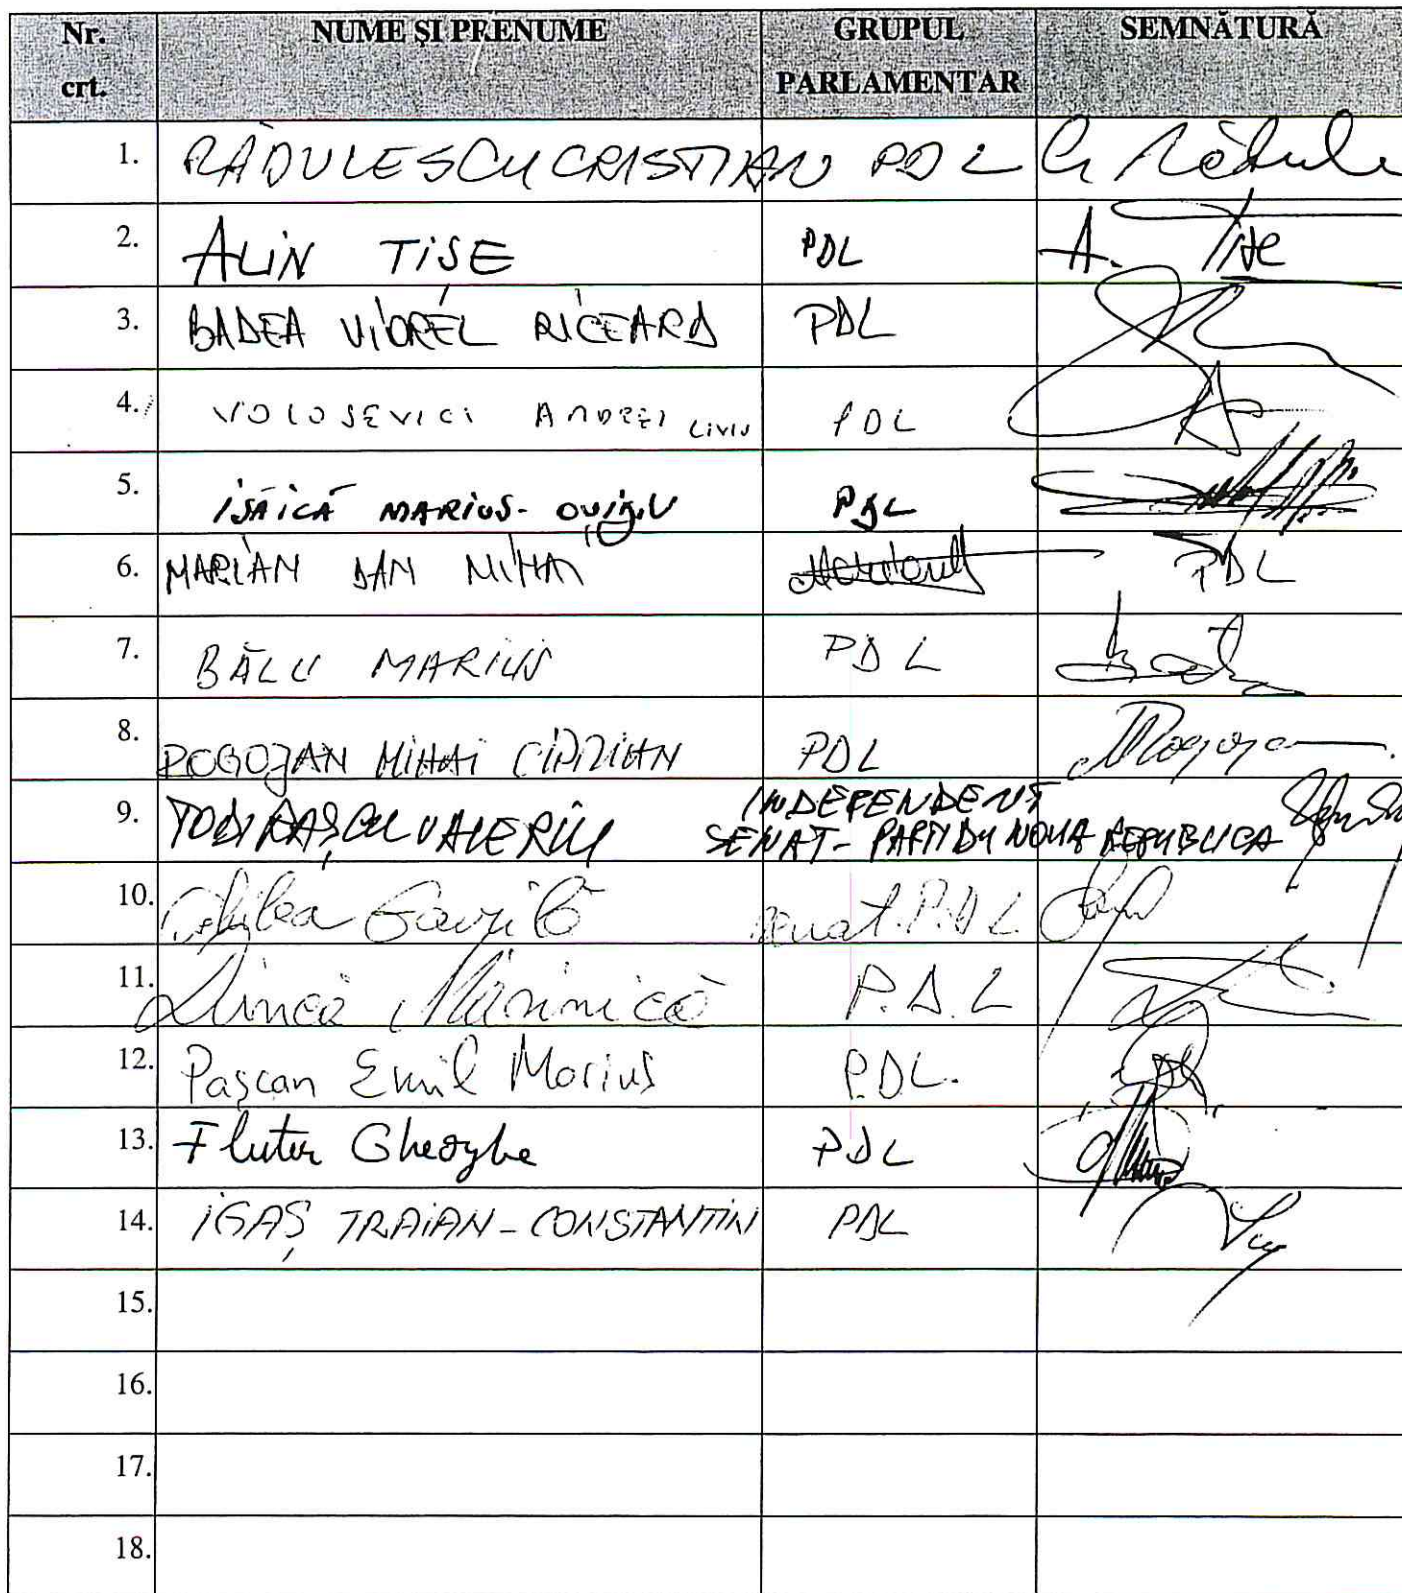 Nr. crt. NUME ŞI PRENUME GRUPUL PARLAMENTAR SEMNĂTURĂ
1. RĂDULESCU CRISTIAN PDL
2. ALIN TIŞE PDL A. Tişe
3. BADEA VIOREL RICEARD PDL
4. VOLOSEVICI ANDREI LIVIU PDL
5. ISĂICĂ MARIUS-OVIDIU PDL
6. MARIAN DAN MIHAI PDL
7. BĂLU MARIUS PDL
8. POGOJAN MIHAI CIPRIAN PDL
9. TODIRAŞCU VALERIU INDEPENDENT
SENAT - PARTIDU NOUA REPUBLICA
10. Gavrilă senat. P.D.L.
11. Dincă Mărinică P.D.L
12. Paşcan Emil Marius P.DL.
13. Flutur Gheorghe PDL
14. IGAŞ TRAIAN-CONSTANTIN PDL
15.
16.
17.
18.